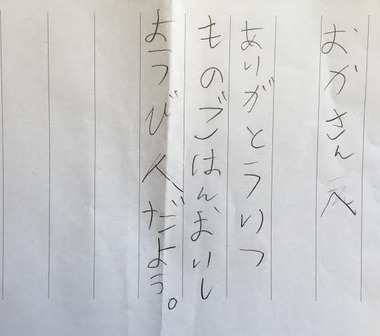 おかさんへ
ありがとういつ
ものごはんおいし
ようび人だよう。